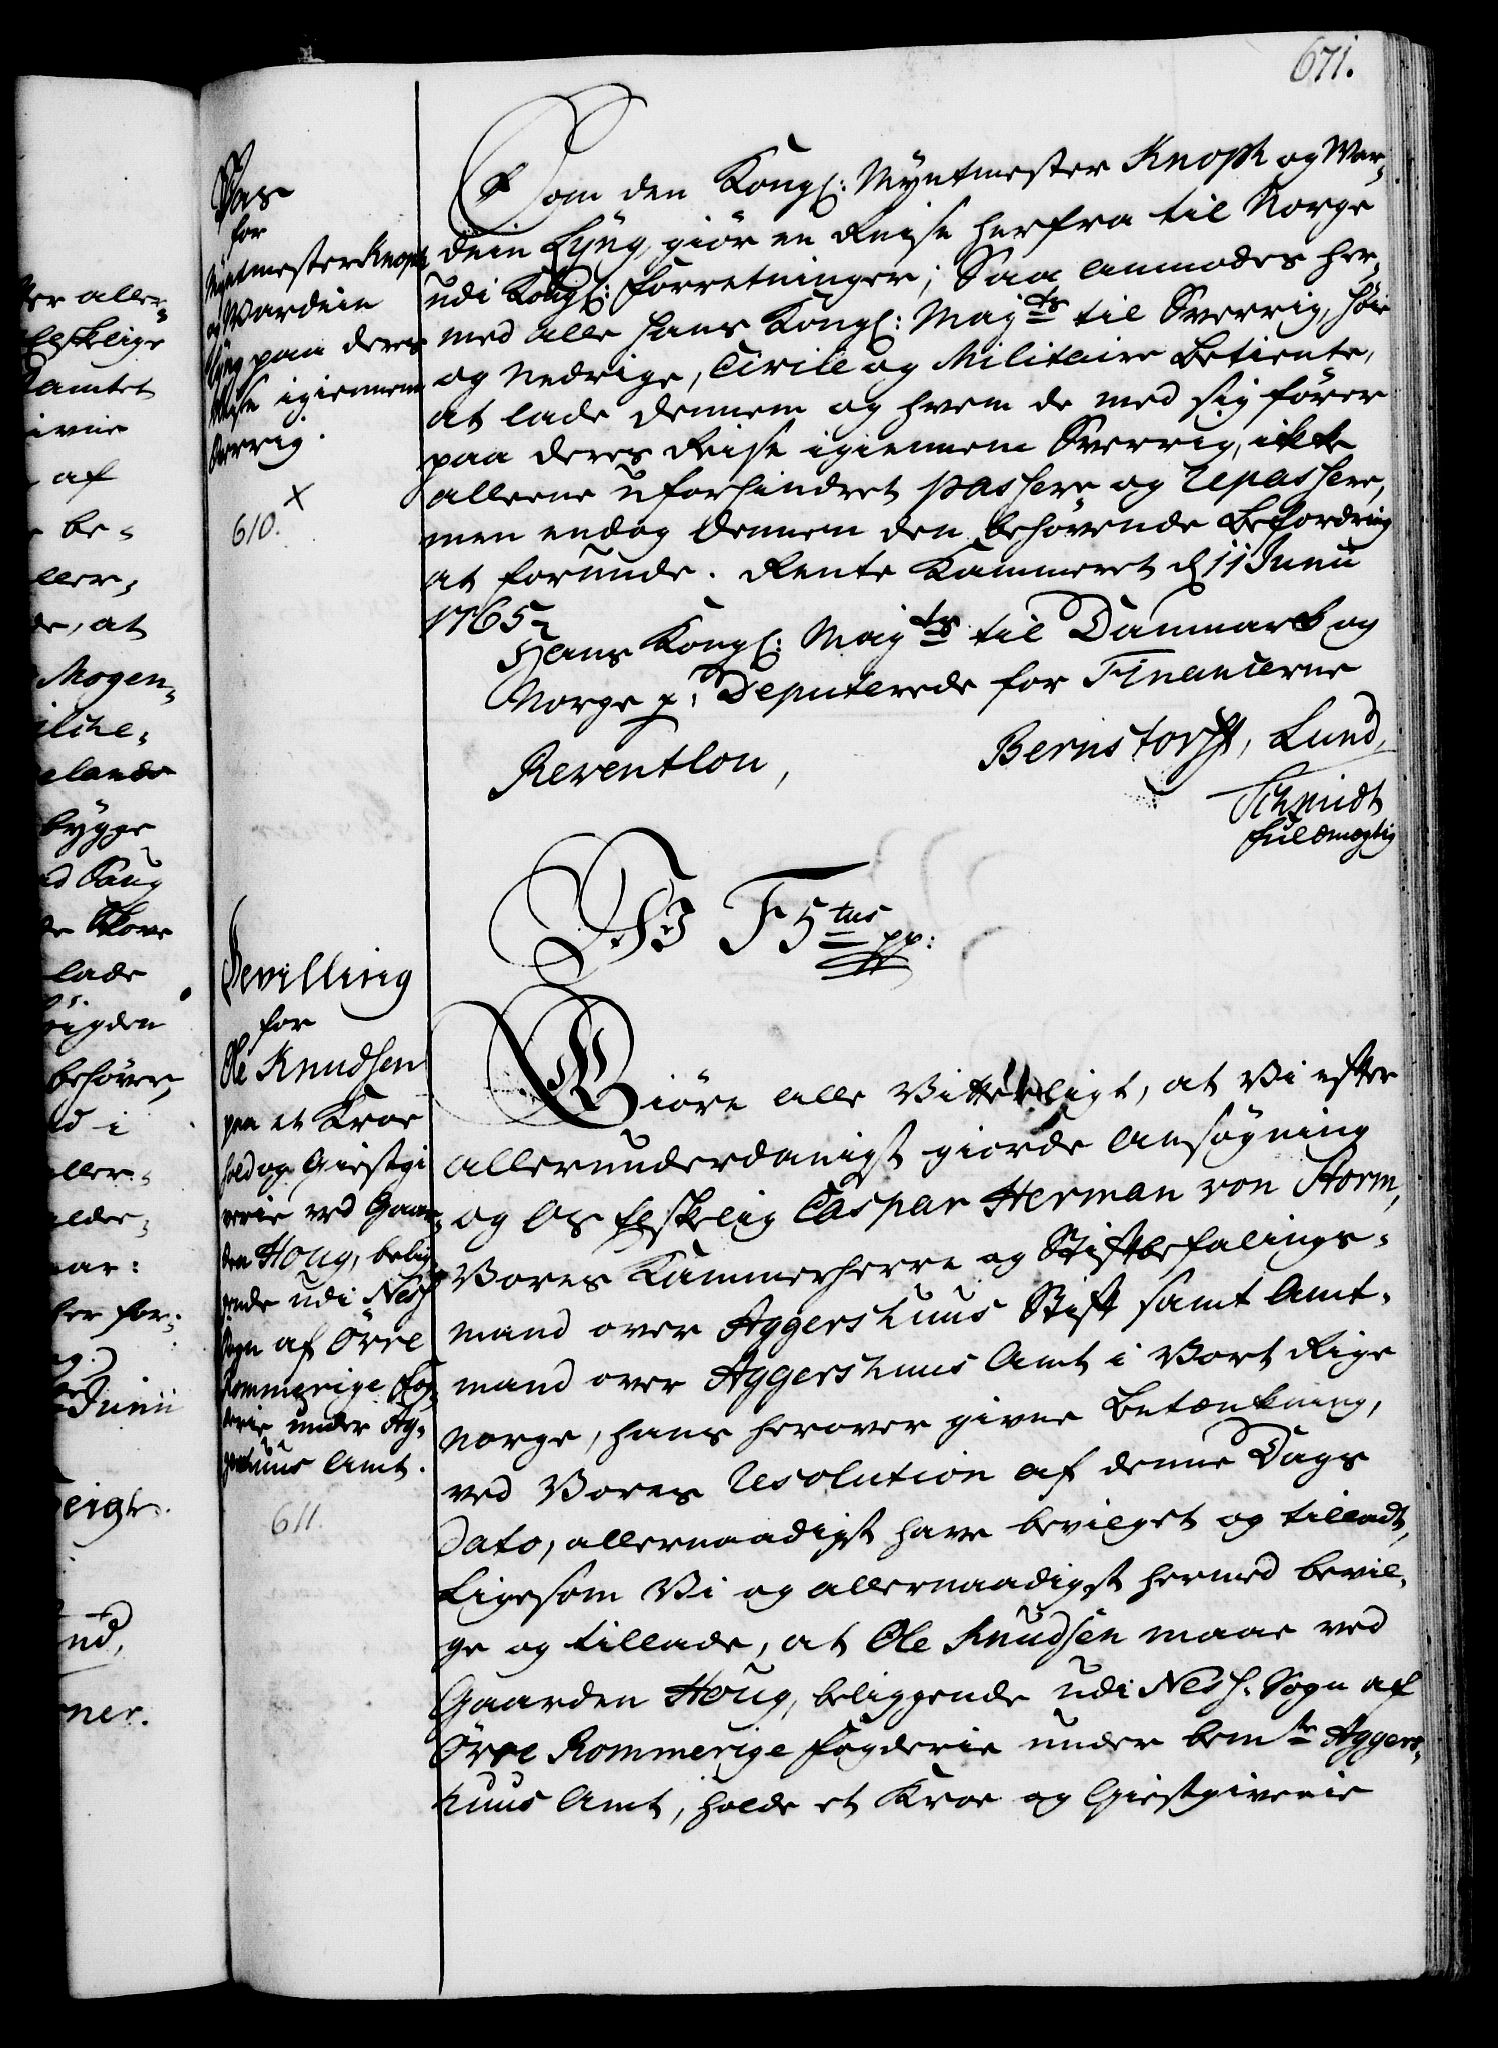 671.
Pas
for
Myntmester Knoph
og Wardein
Lyng paa deres
Reise igiennem
Sverrig.
610. x
Som den Kongl: Myntmester Knoph og War-
dein Lyng, giör en Reise herfra til Norge
udi Kongl: Forretninger; Saa anmodes her-
med alle Hans Kongl: Mayts til Sverrig, höie
og nedrige, Civile og Militaire Betiente,
at lade dennem og hvem de med sig förer
paa deres Reise igiennem Sverrig, ikke
alleene uforhindret passere og repassere,
men endog dennem den behövende Befordring
at forunde. Rente Kammeret d 11 Junii
1765.
Hans Kongl: Mayts til Danmark og
Norge p: Deputerede for Financerne
Reventlou, Bernstorff, Lund,
Schmidt
fuldmegtig
Wi F5tus pp:
Bevilling
for
Ole Knudsen
paa et Kroe
hold og Giestgi
verie ved Gaar-
den Houg, belig-
gende udi Ness
Sogn af Övre
Rommerige Fog-
derie under Ag-
gershuus Amt.
611.
Giöre alle Vitterligt, at Vi efter
allerunderdanigst giorde Ansögning
og Os Elskelig Caspar Herman von Storm,
Vores Kammerherre og Stiftbefalings-
mand over Aggershuus Stift samt Amt-
mand over Aggershuus Amt i Vort Rige
Norge, hans herover givne Betænkning,
ved Vores Resolution af denne Dags
Dato, allernaadigst have bevilget og tilladt,
Ligesom Vi og allernaadigst hermed bevil-
ge og tillade, at Ole Knudsen maae ved
Gaarden Houg, beliggende udi Ness Sogn af
Övre Rommerige Fogderie under bemte Aggers-
huus Amt, holde et Kroe og Giestgiverie